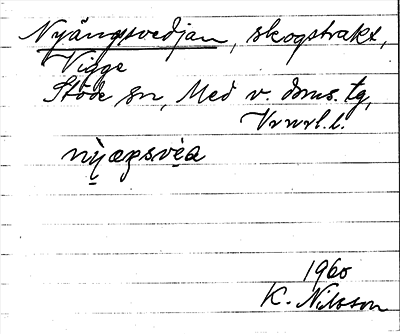 Nyängsvedjan, skogstrakt,
Vigge
Stöde sn, Med v. doms. tg,
Vrnrl. l.
nỳæŋsve̝a
1960
K. Nilsson